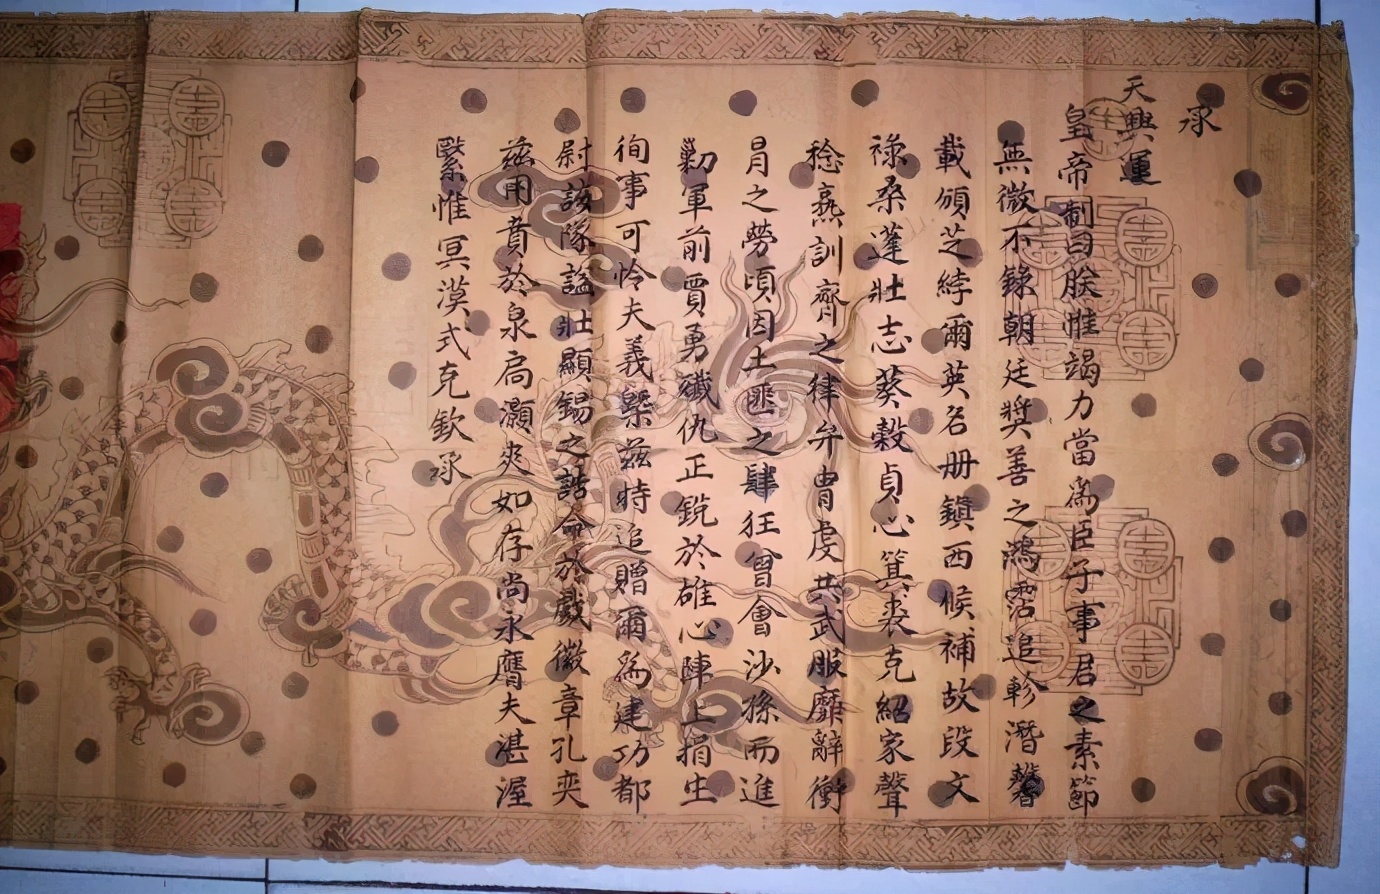 承
天興運
皇帝制曰朕惟竭力當爲臣子事君之素節
無微不錄朝廷獎善之鴻霑追軫潛馨
載頒芝綍爾英名册鎮西候補故段文
祿桑蓬壯志葵穀貞心箕裘克紹家聲
稔熟訓齊之律弁冑虔共武服靡辭衝
冒之勞頃因土匪之肆狂曾會沙孫而進
勦軍前賈勇殲仇正銳於雄心陣上捐生
徇事可怜夫義槩茲特追贈爾爲建功都
尉該隊謚壯顯錫之誥命於戲徽章孔奕
茲用賁於泉扃灝爽如存尚永膺夫湛渥
緊惟冥漠式克欽承